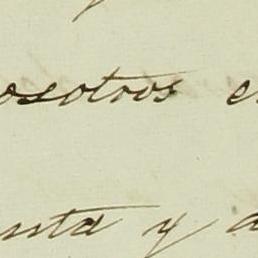 osotros e
nta y a